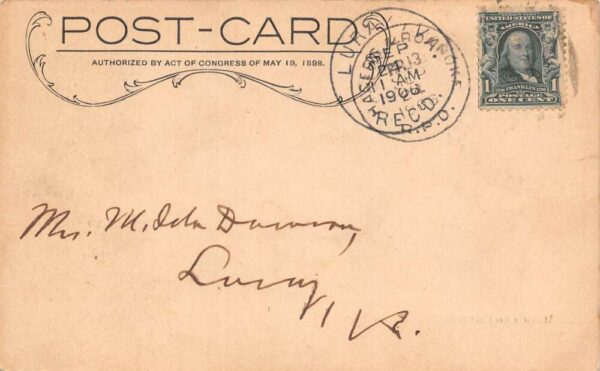 POST-CARD
AUTHORIZED BY ACT OF CONGRESS OF MAY 19, 1898.
LURAY
SEP
13
AM
1906
REC'D.
R.P.O.
UNITED STATES OF
AMERICA
1 FRANKLIN 1
POSTAGE
ONE CENT
Mrs. M. Ida Dawson,
Luray,
Va.